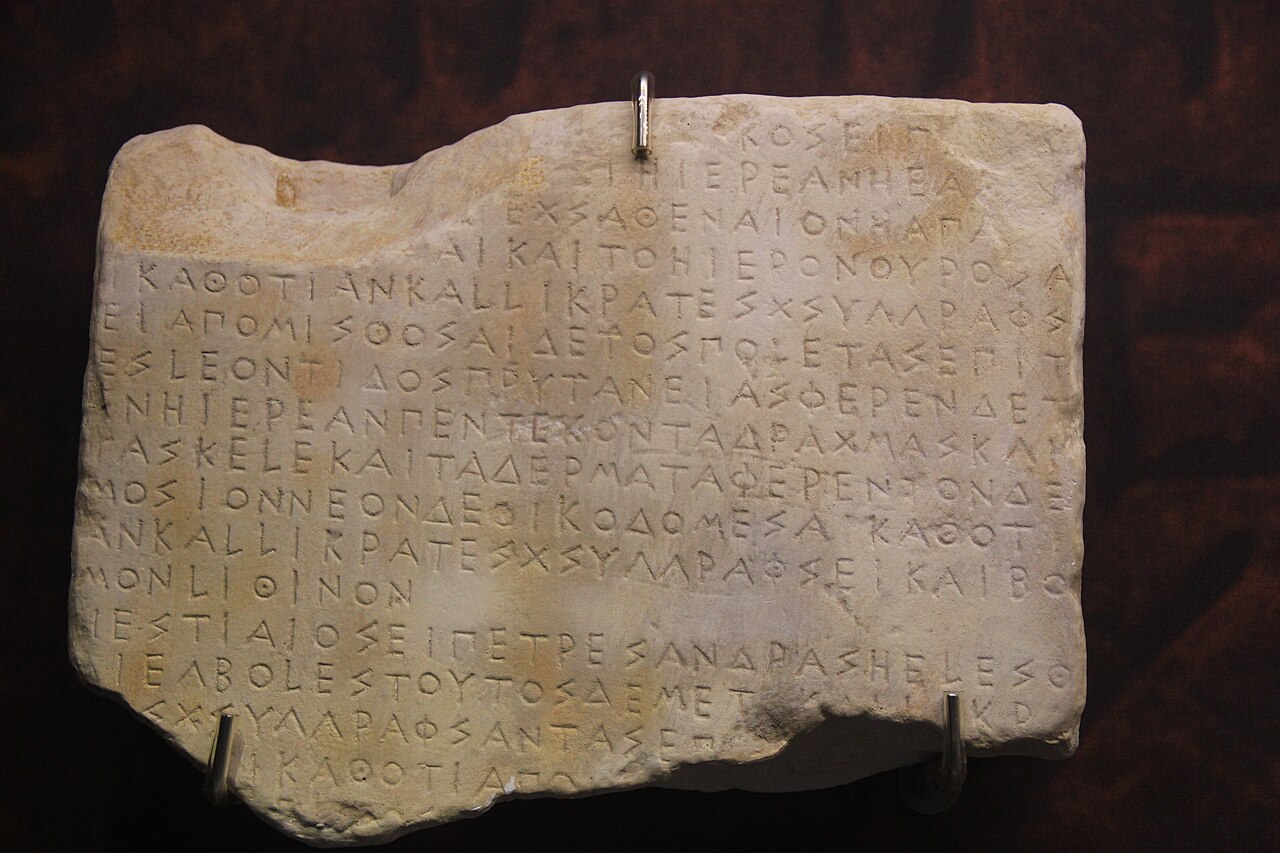 ΚΟΣΕΙΠ
ΙΗΙΕΡΕΑΝΗΕΑ
ΕΧΣΑΘΕΝΑΙΟΝΗΑΠΑ
ΑΙΚΑΙΤΟΗΙΕΡΟΝΘΥΡΟΣΑ
ΙΚΑΘΟΤΙΑΝΚΑΛΛΙΚΡΑΤΕΣΧΣΥΓΓΡΑΦΣ
ΕΙΑΠΟΜΙΣΘΟΣΑΙΔΕΤΟΣΠΟΛΕΤΑΣΕΠΙΤ
ΕΣΛΕΟΝΤΙΔΟΣΠΡΥΤΑΝΕΙΑΣΦΕΡΕΝΔΕΤ
ΕΝΗΙΕΡΕΑΝΠΕΝΤΕΚΟΝΤΑΔΡΑΧΜΑΣΚΑΙ
ΤΑΣΚΕΛΕΚΑΙΤΑΔΕΡΜΑΤΑΦΕΡΕΝΤΟΝΔΕ
ΜΟΣΙΟΝΝΕΟΝΔΕΟΙΚΟΔΟΜΕΣΑΙΚΑΘΟΤΙ
ΑΝΚΑΛΛΙΚΡΑΤΕΣΧΣΥΓΓΡΑΦΣΕΙΚΑΙΒΟ
ΜΟΝΛΙΘΙΝΟΝ
ΗΕΣΤΙΑΙΟΣΕΙΠΕΤΡΕΣΑΝΔΡΑΣΗΕΛΕΣΘ
ΑΙΕΓΒΟΛΕΣΤΟΥΤΟΣΔΕΜΕΤ ΚΑΛΛΙΚΡ
ΣΧΣΥΓΓΡΑΦΣΑΝΤΑΣΕΠ
ΙΚΑΘΟΤΙΑΠΟ